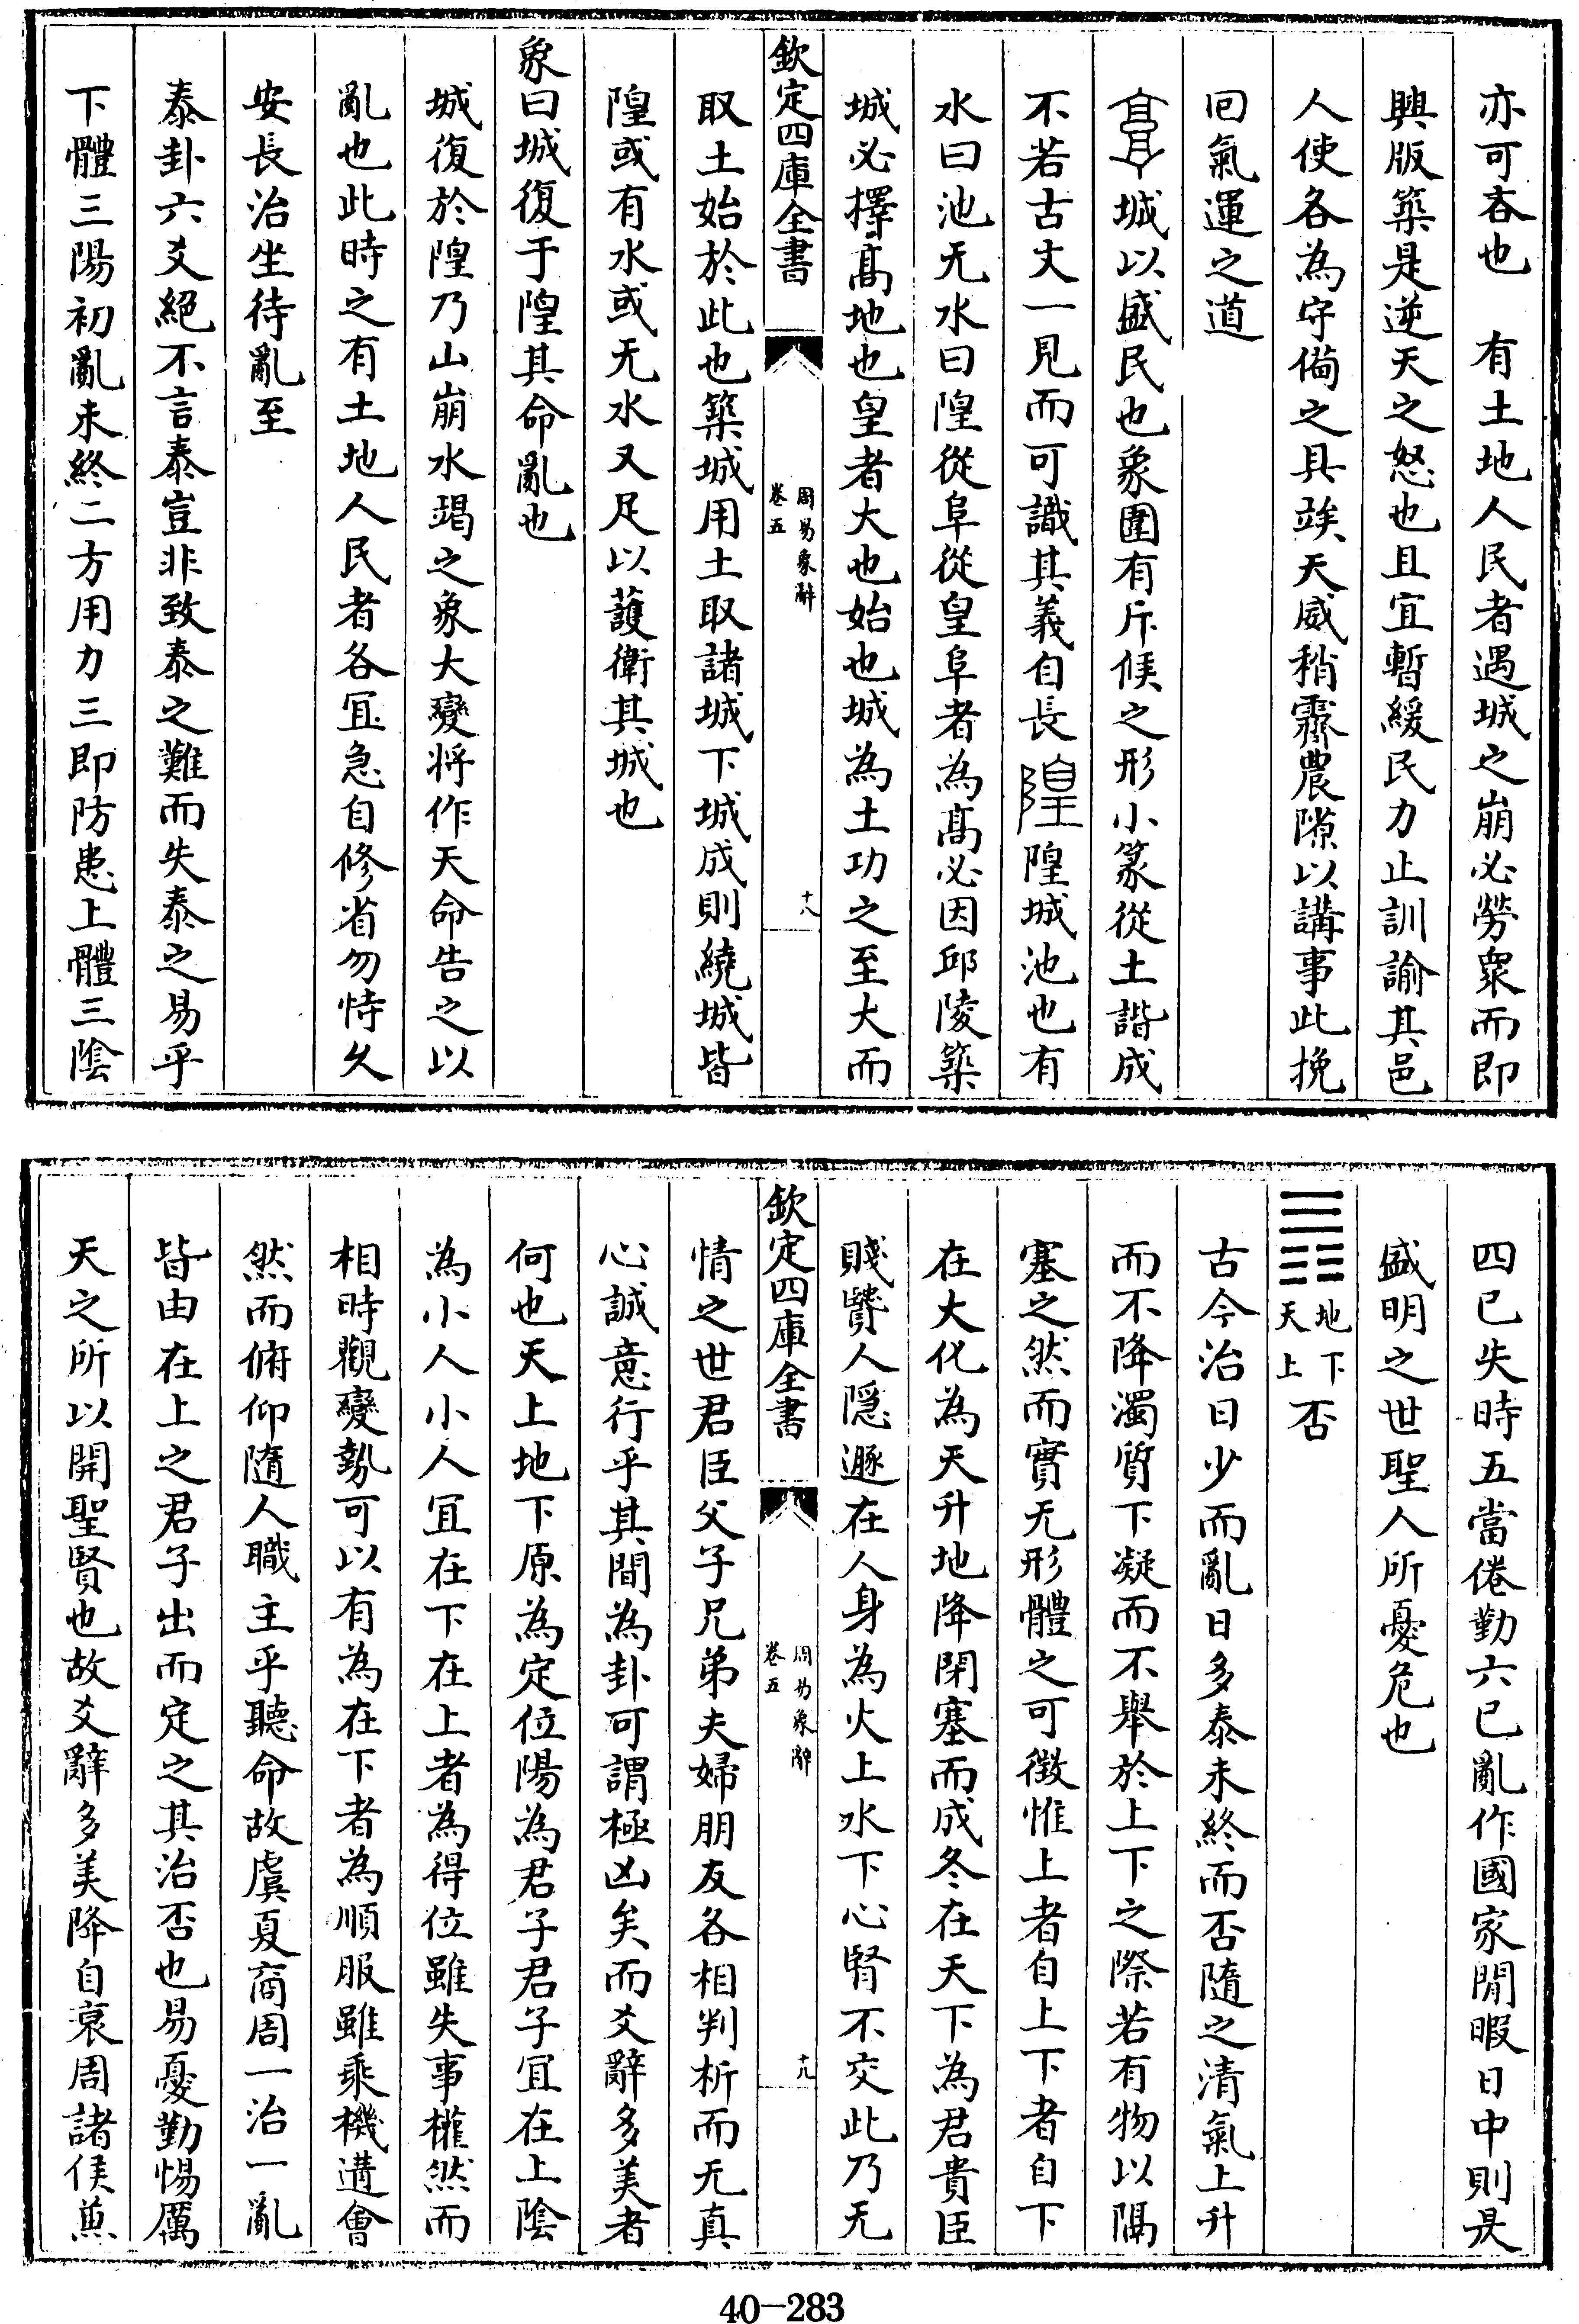 亦可吝也　有土地人民者遇城之崩必勞衆而即
興版築是逆天之怒也且宜暫緩民力止訓諭其邑
人使各為守備之具竢天威稍霽農隙以講事此挽
回氣運之道
城以盛民也象圍有斥候之形小篆從土諧成
不若古文一見而可識其義自長隍隍城池也有
水曰池无水曰隍從阜從皇阜者為髙必因邱陵築
城必擇髙地也皇者大也始也城為土功之至大而
欽定四庫全書
周易象辭
卷五
十八
取土始於此也築城用土取諸城下城成則繞城皆
隍或有水或无水又足以䕶衛其城也
象曰城復于隍其命亂也
城復於隍乃山崩水竭之象大變將作天命告之以
亂也此時之有土地人民者各宜急自修省勿恃久
安長治坐待亂至
泰卦六爻絕不言泰豈非致泰之難而失泰之易乎
下體三陽初亂未終二方用力三即防患上體三陰
四已失時五當倦勤六已亂作國家閒暇日中則昃
盛明之世聖人所憂危也
地下
天上
否
古今治日少而亂日多泰未終而否隨之清氣上升
而不降濁質下凝而不舉於上下之際若有物以隔
塞之然而實无形體之可徴惟上者自上下者自下
在大化為天升地降閉塞而成冬在天下為君貴臣
賤賢人隱遯在人身為火上水下心腎不交此乃无
欽定四庫全書
周易象辭
卷五
十九
情之世君臣父子兄弟夫婦朋友各相判析而无真
心誠意行乎其間為卦可謂極凶矣而爻辭多美者
何也天上地下原為定位陽為君子君子宜在上陰
為小人小人宜在下在上者為得位雖失事權然而
相時觀變勢可以有為在下者為順服雖乘機遘會
然而俯仰隨人職主乎聽命故虞夏商周一治一亂
皆由在上之君子出而定之其治否也易憂勤惕厲
天之所以開聖賢也故爻辭多美降自衰周諸侯兼
40-283